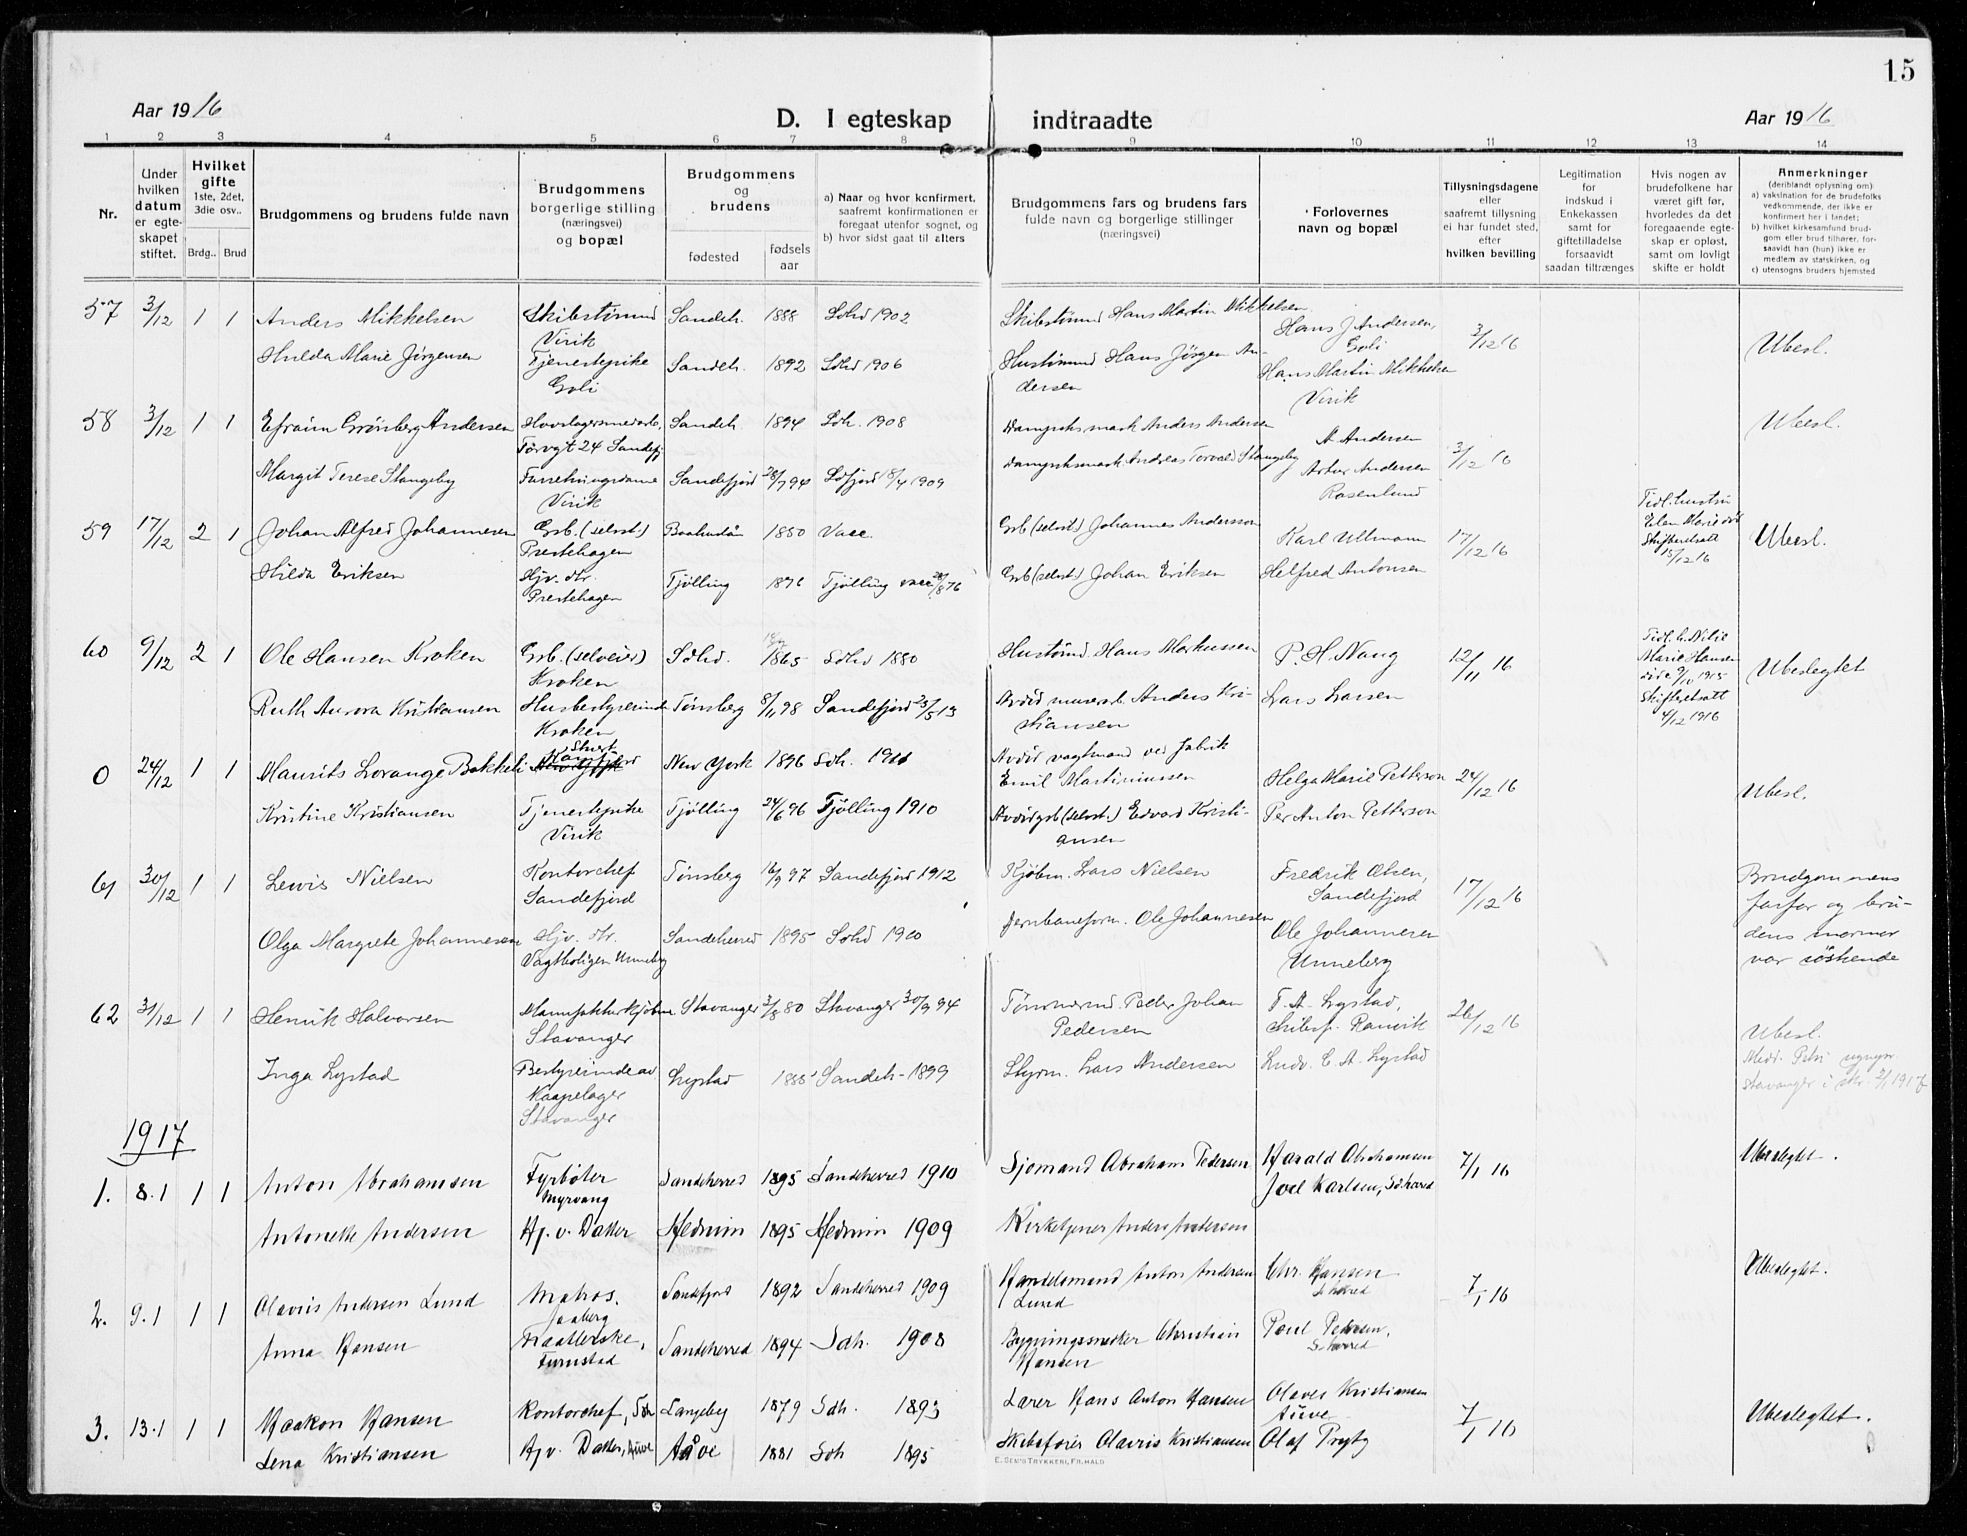 15
Aar 1916
D. I egteskap indtraadte
Aar 1916
1 2 3 4 5 6 7 8 9 10 11 12 13 14
Nr.
Under hvilken datum er egteskapet stiftet.
Hvilket gifte 1ste, 2det, 3die osv..
Brdg.. Brud
Brudgommens og brudens fulde navn
Brudgommens borgerlige stilling (næringsvei) og bopæl
Brudgommens og brudens
fødested
fødsels aar
a) Naar og hvor konfirmert, saafremt konfirmationen er foregaat utenfor sognet, og
b) hvor sidst gaat til alters
Brudgommens fars og brudens fars fulde navn og borgerlige stillinger (næringsvei)
Forlovernes navn og bopæl
Tillysningsdagene eller saafremt tillysning ei har fundet sted, efter hvilken bevilling
Legitimation for indskud i Enkekassen samt for giftetilladelse forsaavidt saadan tiltrænges
Hvis nogen av brudefolkene har været gift før, hvorledes da det foregaaende egteskap er opløst, samt om lovligt skifte er holdt
Anmerkninger (deriblandt oplysning om)
a) vaksination for de brudefolks vedkommende, der ikke er konfirmert her i landet;
b) hvilket kirkesamfund brudgom eller brud tilhører, forsaavidt han (hun) ikke er medlem av statskirken, og
c) utensogns bruders hjemsted
57 3/12 1 1 Anders Mikkelsen Skibstømmd Virik Sandeh. 1888 Sdhd 1902 Skibstømmd Hans Martin Mikkelsen Hans J Andersen, Goli 3/12 16 Ubesl.
Hulda Marie Jørgensen Tjenestepike Goli Sandeh. 1892 Sdhd 1906 Hustømmd Hans Jörgen Andersen Hans Martin Mikkelsen Virik
58 3/12 1 1 Efraim Grönberg Andersen Hovslagersmedarb, Torvgt 24 Sandefj Sandeh. 1894 Sdh. 1908 Anders Andersen A Andersen 3/12 16 Ubesl.
Margit Terese Stangeby Virik Sandefjord 28/7 94 Sdfjord 18/4 1909 Andreas Torvald Stangeby Artur Andersen Rosenlund
59 17/12 2 1 Johan Alfred Johannesen Grb. (selvst.) Prestehagen 1850 Vacc. Grb (selvst.) Johannes Andersson Karl Ullmann 17/12 16 Tidl. hustru Elen Marie död Skifteretsatt 15/12 16 Ubesl.
Hilda Eriksen Hjv. dtr. Prestehagen Tjölling 1876 Tjölling vacc 28/8 76 Grb (selvst.) Johan Eriksen Helfred Antonsen
60 9/12 2 1 Ole Hansen Kroken Grb. (selveier) Kroken Sdhd. 1865 Sdhd 1880 Hustömd. Hans Markussen P. H. Nang 12/11 16 Marie Hansen 1915 Skifteretsatt 4/12 1916 Ubeslegtet
Ruth Aurora Kristiansen Husbestyrerinde Kroken Tönsberg 8/11 98 Sandefjord 23/5 13 Avdöd murerarb. Anders Kristiansen Lars Larsen
0 24/12 1 1 Maurits Lorange Bakkeli New York 1896 Sdh. 1911 Avdöd vagtmand ved fabrik Emil Martiniussen Helga Marie Petterson 24/12 16 Ubesl.
Kristine Kristiansen Tjenestepike Virik Tjölling 24/6 96 Tjölling 1910 Avdöd grb (selvst.) Edvard Kristiansen Per Anton Petterson
61 30/12 1 1 Lewis Nielsen Kontorchef Sandefjord Tönsberg 16/9 97 Sandefjord 1912 Kjöbm. Lars Nielsen Fredrik Olsen, Sandefjord 17/12 16 Brudgommens farfar og brudens mormor var söskende
Olga Margrete Johannesen Hjv. dtr. Vagtboligen Unneberg Sandeherred 1895 Sdhd 1910 Jernbaneform. Ole Johannesen Ole Johannesen Unneberg
62 31/12 1 1 Henrik Halvorsen Manufakturkjöbm. Stavanger Stavanger 3/8 80 Stavanger 30/9 94 Tömmermd. Peder Johan Pedersen T. A. Lystad, Skibsf. Ranvik 26/12 16 Ubesl.
Inga Lystad Bestyrerinde av Kaapelager Stavanger Lystad 1885 Sandeh. 1899 Styrm. Lars Andersen Ludv. E. A. Lystad
1917
1. 8.1 1 1 Anton Abrahamsen Fyrbøter Myrvang Sandeherred 1895 Sandeherred 1910 Sjømand Abraham Pedersen Harald Abrahamsen Joel Karlsen, Sdhered 7/1 16 Ubeslegtet.
Antonette Andersen Hj. v. Datter Hedrum 1895 Hedrum 1909 Kirketjener Anders Andersen
2. 9.1 1 1 Olavus Andersen Lund Matros. Jaaberg Sandefjord 1892 Sandeherred 1909 Handelsmand Anton Andersen Lund Chr. Hansen Sdhered 7/1 16 Ubeslegtet.
Anna Hansen Maatterske, Furustad Sandeherred 1894 Sdh. 1908 Bygningssnekker Christian Hansen Poul Pedersen, Sdhered
3. 13.1 1 1 Haakon Hansen Kontorchef, Sdh Langeby 1879 Sdh. 1893 Lærer Hans Anton Hansen Olaves Kristiansen Auve 7/1 16 Ubeslegtet.
Lena Kristiansen Hjv. Datter, Auve Auve 1881 Sdh 1895 Skibsfører Olavus Kristiansen Olaf Prytz
E. SEM'S TRYKKERI, FR.HALD